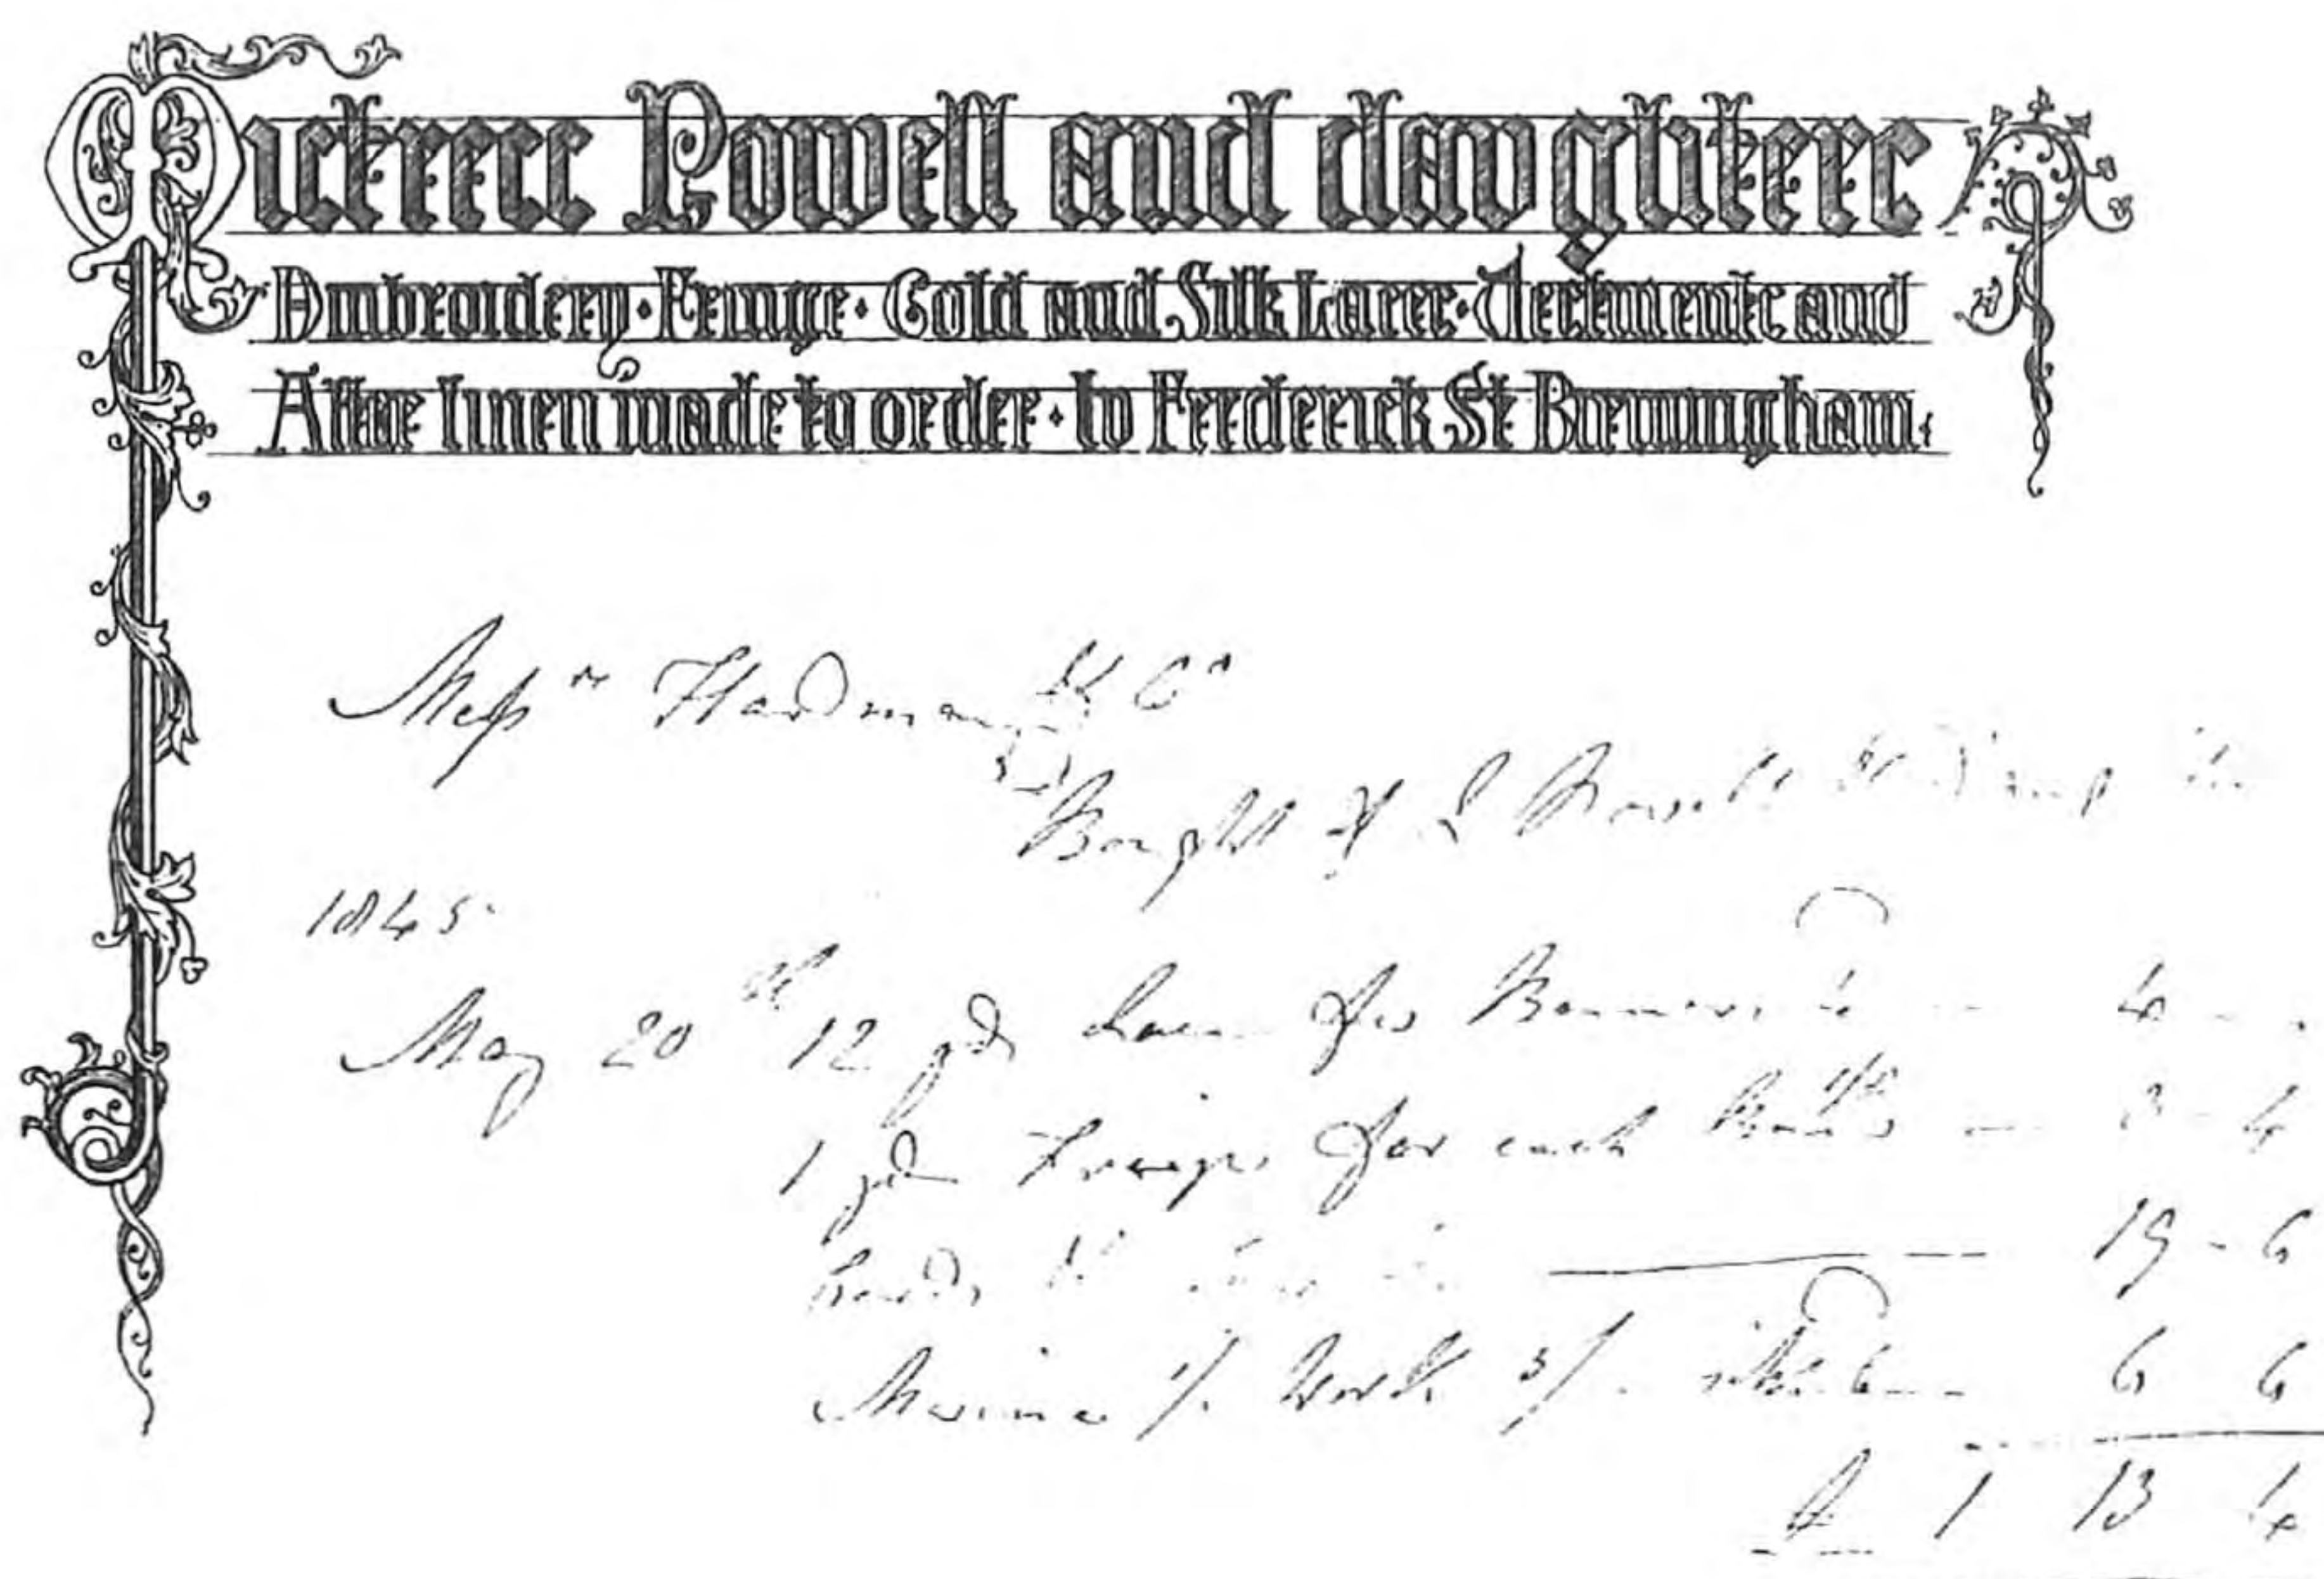 Mistress Powell and daughters
Embroidery · Fringe · Gold and Silk Laces · Vestments and
Altar linen made to order · to Frederick St Birmingham.
Messrs Hardman & Co
Bought of L Powell &
1845
May 20th 12 yds Lace for Banners 4 — 4 -
1 yd Fringe for each 3 - 4
19 - 6
1/. Work 3/. 6 6
£ 1 13 4